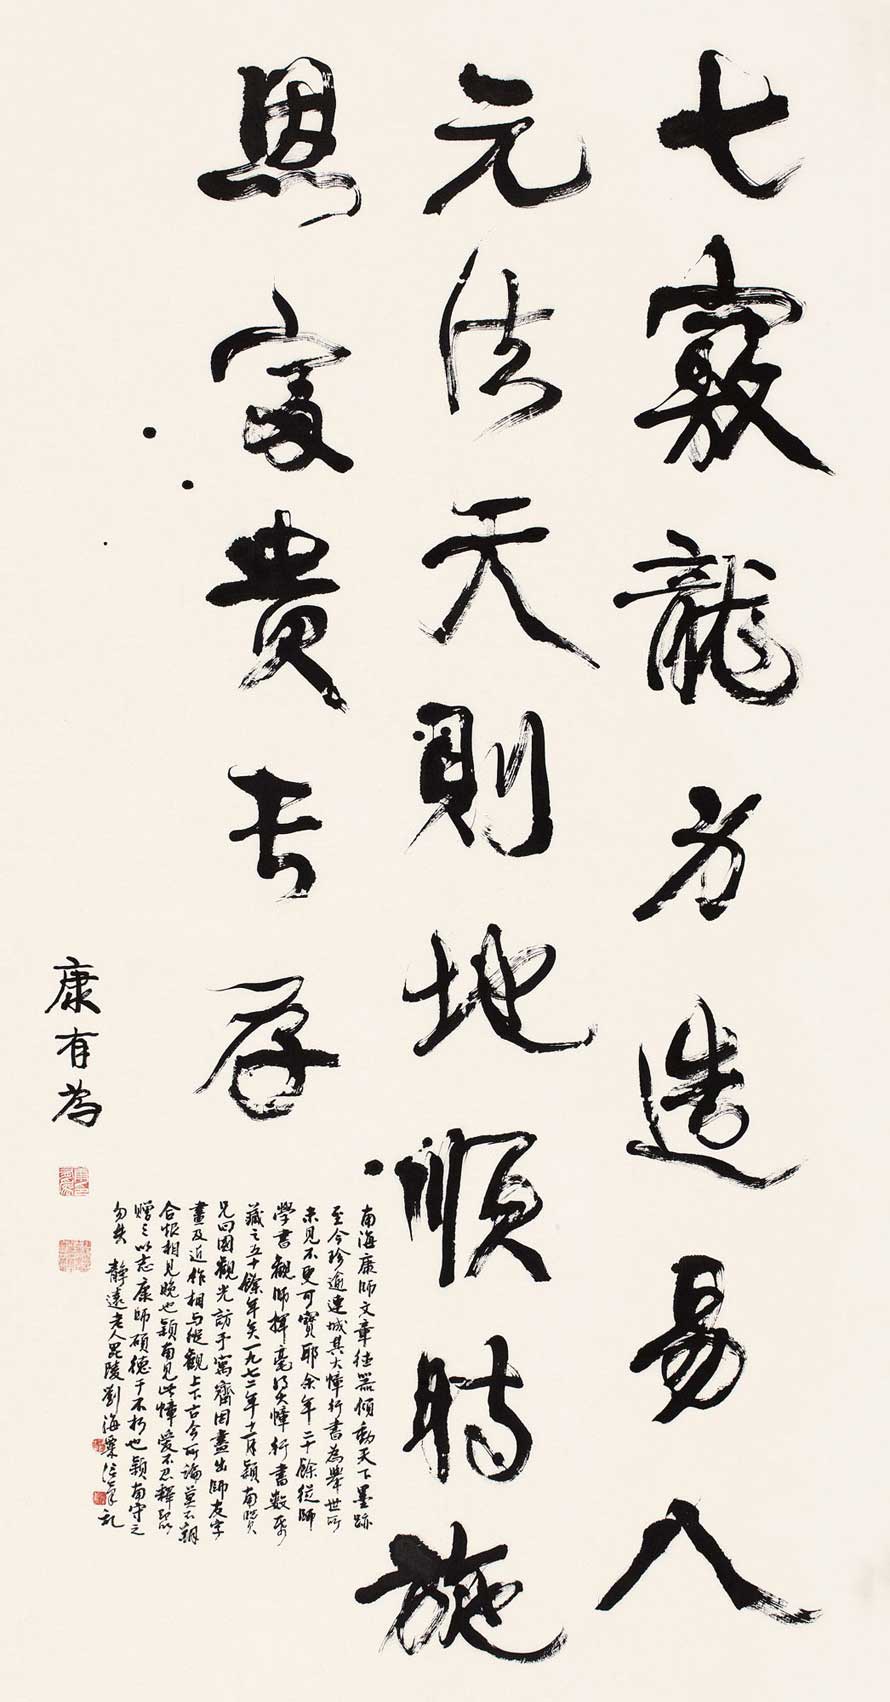 七竅龍身造易八
元法天則地順時施
恩富貴長存
康有為
南海康師文章德器傾動天下墨跡
至今珍逾連城其大幛行書為舉世所
未見不更可寶耶余年二十餘從師
學書觀師揮毫得大幛行書數
藏之五十餘年矣一九七二年十一月穎南賢
兄回國觀光訪于寓齋因盡出師友字
畫及近作相与縱觀上下古今所論莫不
合恨相見晚也穎南見此幛愛不忍釋以
贈之以志康師碩德于不朽也穎南守之
勿失 靜遠老人毘陵劉海粟 記